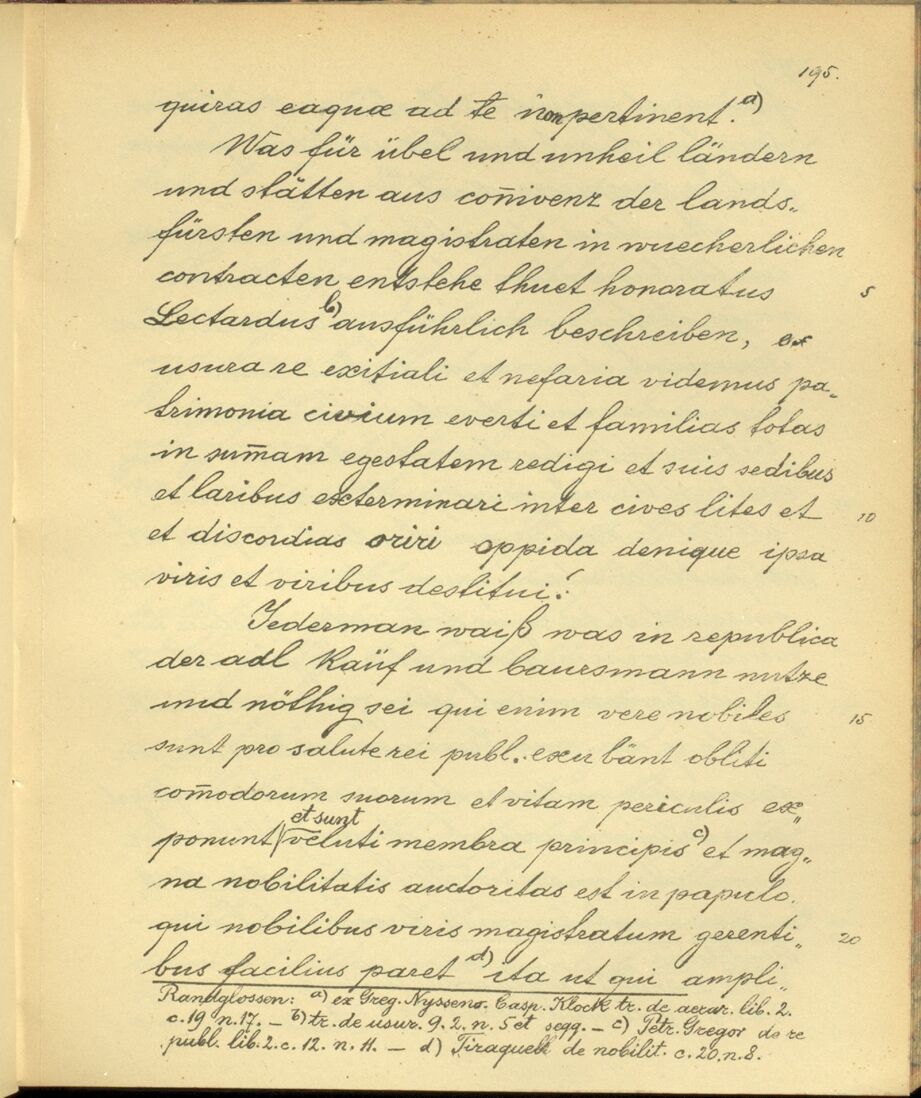 195.
quiras eaquæ ad te non pertinent. a)
Was für übel und unheil ländern
und stätten aus con̄ivenz der lands„
fürsten und magistraten in wuecherlichen
contracten entstehe thuet honoratus 5
Lectardus b) ausführlich beschreiben, ex
usura re exitiali et nefaria videmus pa„
trimonia civium everti et familias totas
in sum̄am egestatem redigi et suis sedibus
et laribus exterminari inter cives lites et 10
et discordias oriri oppida denique ipsa
viris et viribus destitui!
Jederman waiß was in republica
der adl Kauf und baursmann nutze
und nöthig sei qui enim vere nobiles 15
sunt pro salute rei publ. excubant obliti
com̄odorum suorum et vitam periculis ex„
et sunt
ponunt veluti membra principis c) et mag„
na nobilitatis auctoritas est in papulo.
qui nobilibus viris magistratum gerenti„ 20
bus facilius paret d) ita ut qui ampli„
Randglossen: a) ex Greg. Nysseno. Casp. Klock tr. de aerar. lib. 2.
c. 19 n. 17. – b) tr. de usur. 9. 2. n. 5 et segg. – c) Petr. Gregor de re
publ. lib. 2. c. 12. n. 11. – d) Tiraquell de nobilit. c. 20. n. 8.